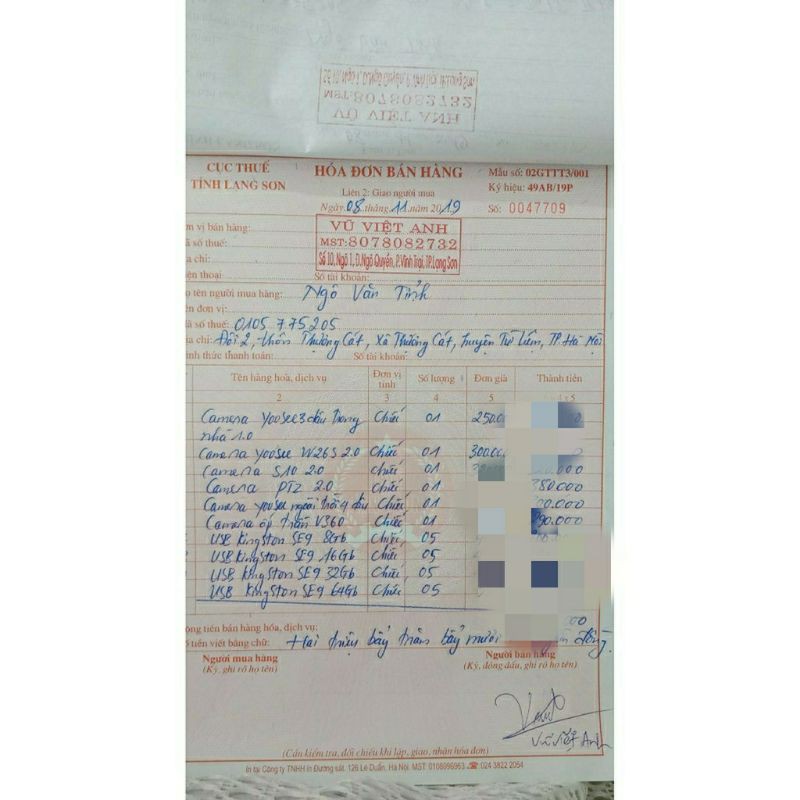 Số 10, Ngõ 1, Đ.Ngô Quyền, P.Vĩnh Trại, TP.Lạng Sơn
MST:8078082732
VŨ VIỆT ANH
CỤC THUẾ
TỈNH LẠNG SƠN
HÓA ĐƠN BÁN HÀNG
Liên 2: Giao người mua
Ngày 08 tháng 11 năm 2019
Mẫu số: 02GTTT3/001
Ký hiệu: 49AB/19P
Số: 0047709
ơn vị bán hàng:
ã số thuế:
a chỉ:
iện thoại Số tài khoản:
VŨ VIỆT ANH
MST:8078082732
Số 10, Ngõ 1, Đ.Ngô Quyền, P.Vĩnh Trại, TP.Lạng Sơn
ọ tên người mua hàng: Ngô Văn Tỉnh
ên đơn vị:
ã số thuế: 0105775205
a chỉ: Đội 2, thôn Thượng Cát, Xã Thượng Cát, huyện Từ Liêm, TP Hà Nội
ình thức thanh toán: Số tài khoản:
Tên hàng hoá, dịch vụ Đơn vị tính Số lượng Đơn giá Thành tiền
2 3 4 5
Camera Yoosee 3 dâu trong nhà 1.0 Chiếc 01 250.0
Camera yoosee W26S 2.0 Chiếc 01 300.00
Camera S10 2.0 Chiếc 01 0.000
Camera PTZ 2.0 Chiếc 01 380.000
Camera yoosee ngoài trời 4 dâu Chiếc 01 00.000
Camera ốp trần V360 Chiếc 01 90.000
USB Kingston SE9 8Gb Chiếc 05
USB Kingston SE9 16Gb Chiếc 05
USB Kingston SE9 32Gb Chiếc 05
USB Kingston SE9 64Gb Chiếc 05
ộng tiền bán hàng hóa, dịch vụ: .000
ố tiền viết bằng chữ: Hai triệu bẩy trăm bẩy mươi đồng.
Người mua hàng
(Ký, ghi rõ họ tên)
Người bán hàng
(Ký, đóng dấu, ghi rõ họ tên)
Vũ Việt Anh
(Cần kiểm tra, đối chiếu khi lập, giao, nhận hóa đơn)
In tại Công ty TNHH In Đường sắt. 126 Lê Duẩn, Hà Nội. MST 0108996963 ☎ 024 3822 2054